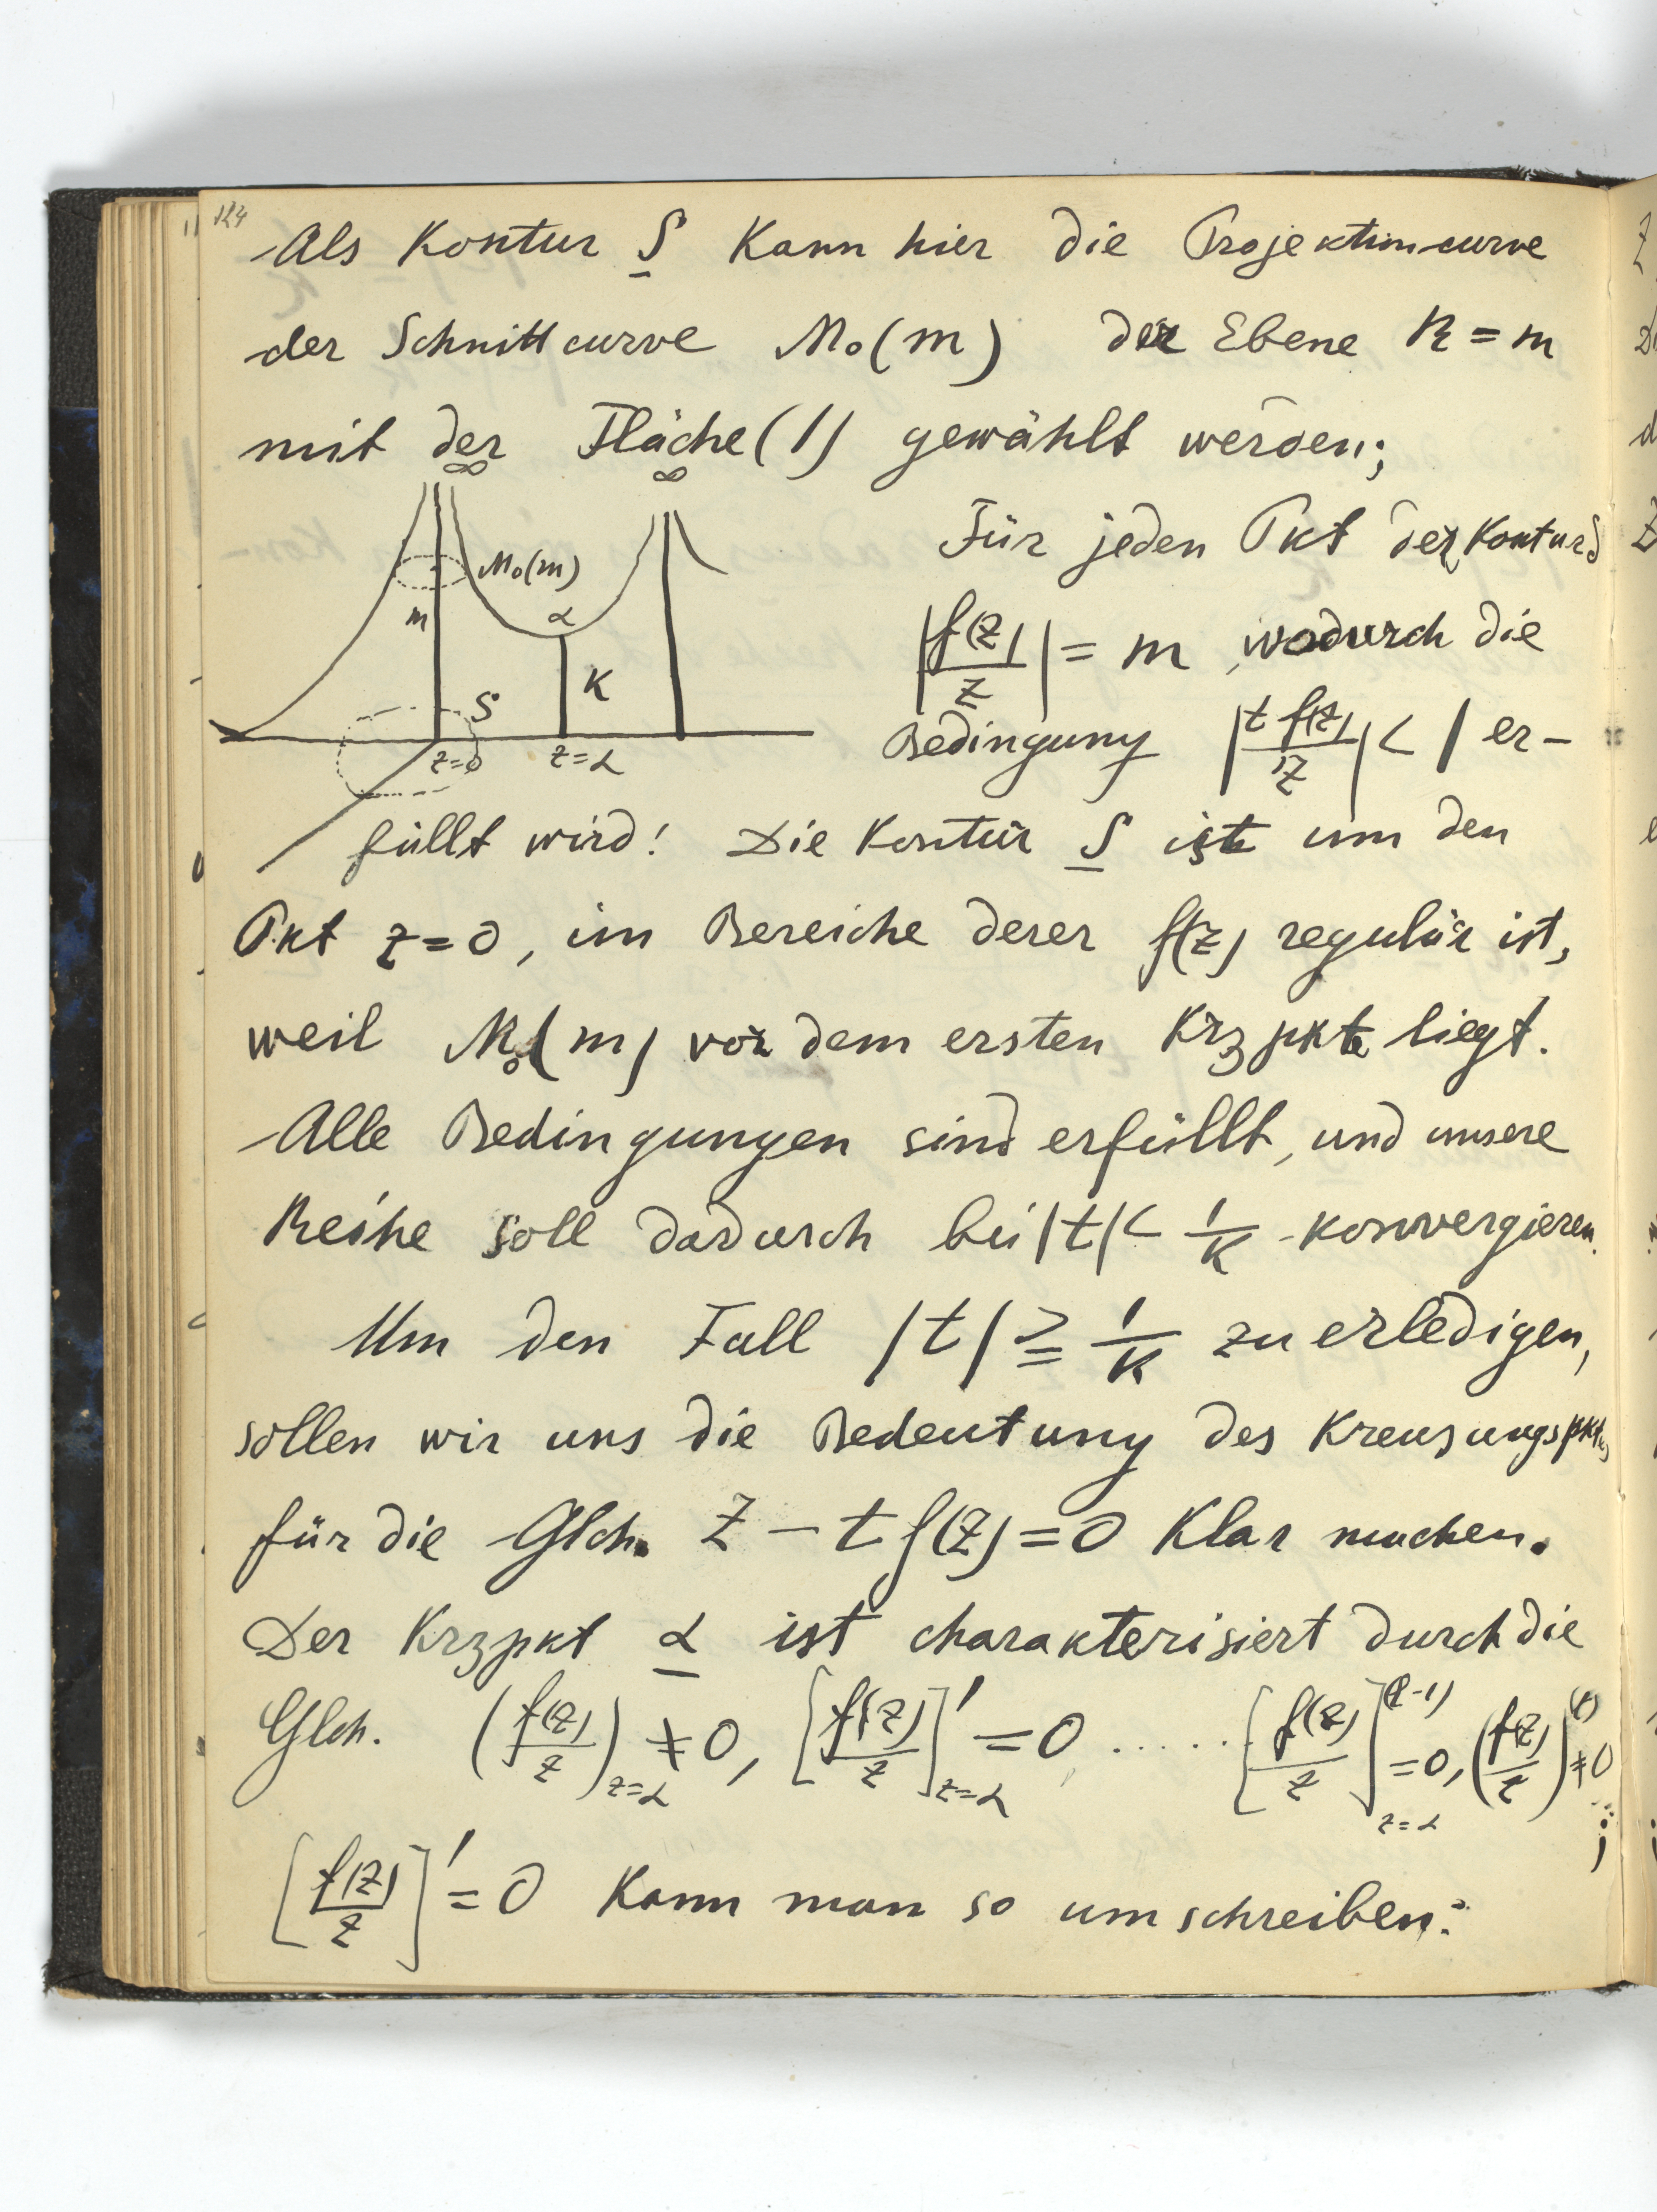 124
Als Kontur S kann hier die Projektioncurve
der Schnittcurve M₀(m) der Ebene R = m
mit der Fläche (1) gewählt werden;
∞ ∞
M₀(m)
m
α
K
S
z=0 z=α
Für jeden Pkt der Kontur S
|f(z)/z| = m, wodurch die
Bedingung |t f(z)/z| < 1 er-
füllt wird! Die Kontur S ist um den
Pkt z=0, im Bereiche derer f(z) regulär ist,
weil M₀(m) vor dem ersten Krzpkte liegt.
Alle Bedingungen sind erfüllt, und unsere
Reihe soll dadurch bei |t| < 1/K konvergieren.
Um den Fall |t| ≥ 1/K zu erledigen,
sollen wir uns die Bedeutung des Kreuzungspktes
für die Glch. z − t f(z) = 0 klar machen.
Der Krzpkt α ist charakterisiert durch die
Glch. (f(z)/z)_{z=α} ≠ 0, [f(z)/z]'_{z=α} = 0 ..... [f(z)/z]^{(l-1)}_{z=α} = 0, (f(z)/z)^{(l)} ≠ 0;
[f(z)/z]' = 0 kann man so umschreiben: